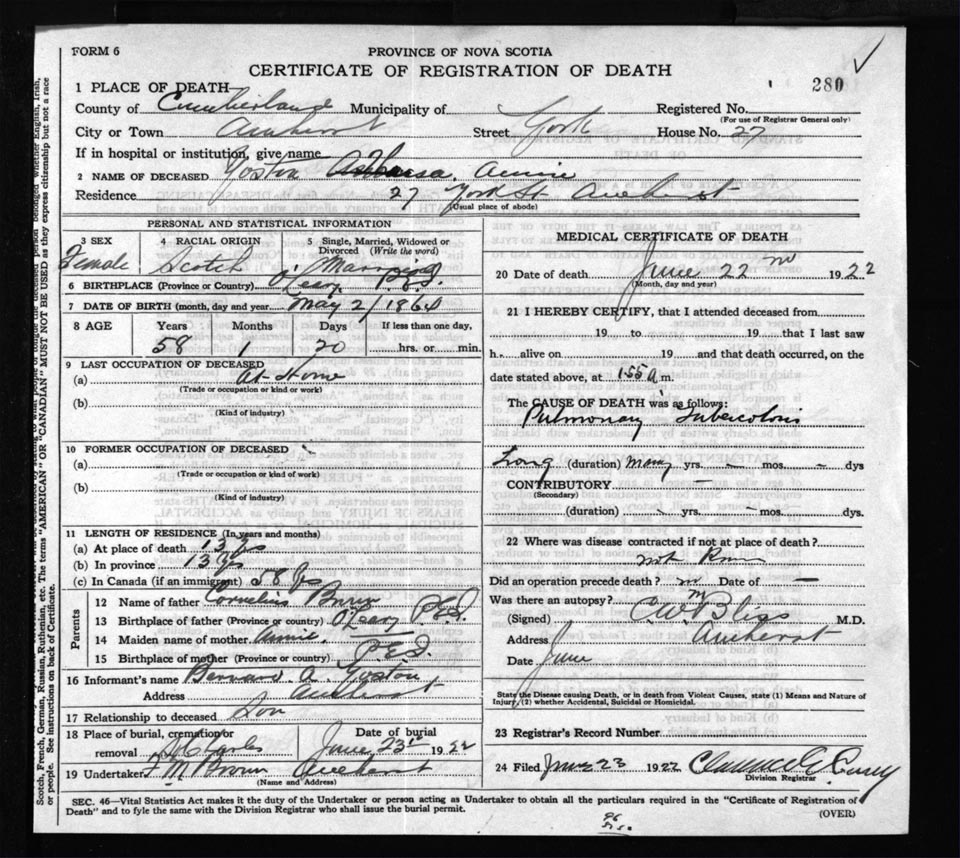 FORM 6
PROVINCE OF NOVA SCOTIA
CERTIFICATE OF REGISTRATION OF DEATH
280
1 PLACE OF DEATH
County of Cumberland Municipality of Registered No.
(For use of Registrar General only)
City or Town Amherst Street York House No. 27
If in hospital or institution, give name
2 NAME OF DECEASED Annie
Residence 27 York St. Amherst
(Usual place of abode)
PERSONAL AND STATISTICAL INFORMATION
3 SEX 4 RACIAL ORIGIN 5 Single, Married, Widowed or Divorced (Write the word)
Female Scotch Married
6 BIRTHPLACE (Province or Country) O'Leary P.E.I.
7 DATE OF BIRTH (month, day and year) May 2/1864
8 AGE Years Months Days If less than one day,
58 1 20 hrs. or min.
9 LAST OCCUPATION OF DECEASED
(a) At Home
(Trade or occupation or kind or work)
(b)
(Kind of industry)
10 FORMER OCCUPATION OF DECEASED
(a)
(Trade or occupation or kind of work)
(b)
(Kind of industry)
11 LENGTH OF RESIDENCE (In years and months)
(a) At place of death 13 yrs
(b) In province 13 yrs
(c) In Canada (if an immigrant) 58 yrs
Parents
12 Name of father Cornelius
13 Birthplace of father (Province or country) O'Leary P.E.I.
14 Maiden name of mother Annie
15 Birthplace of mother (Province or country) P.E.I.
16 Informant's name Bernard A.
Address Amherst
17 Relationship to deceased Son
18 Place of burial, cremation or removal St Charles
Date of burial June 23rd 1922
19 Undertaker F M Brown Amherst
(Name and Address)
MEDICAL CERTIFICATE OF DEATH
20 Date of death June 22nd 1922
(Month, day and year)
21 I HEREBY CERTIFY, that I attended deceased from
19 to 19 that I last saw
h alive on 19 and that death occurred, on the
date stated above, at 1.55 a m.
The CAUSE OF DEATH was as follows:
Pulmonary Tuberculosis
Long (duration) Many yrs. – mos. – dys
CONTRIBUTORY –
(Secondary)
(duration) – yrs. – mos. dys.
22 Where was disease contracted if not at place of death?
not
Did an operation precede death? no Date of –
Was there an autopsy? no
(Signed) C.W. Bliss M.D.
Address Amherst
Date June
State the Disease causing Death, or in death from Violent Causes, state (1) Means and Nature of
Injury, (2) whether Accidental, Suicidal or Homicidal.
23 Registrar's Record Number
24 Filed June 23 1922 Clarence E
Division Registrar
SEC. 46—Vital Statistics Act makes it the duty of the Undertaker or person acting as Undertaker to obtain all the particulars required in the "Certificate of Registration of
Death" and to fyle the same with the Division Registrar who shall issue the burial permit.
(OVER)